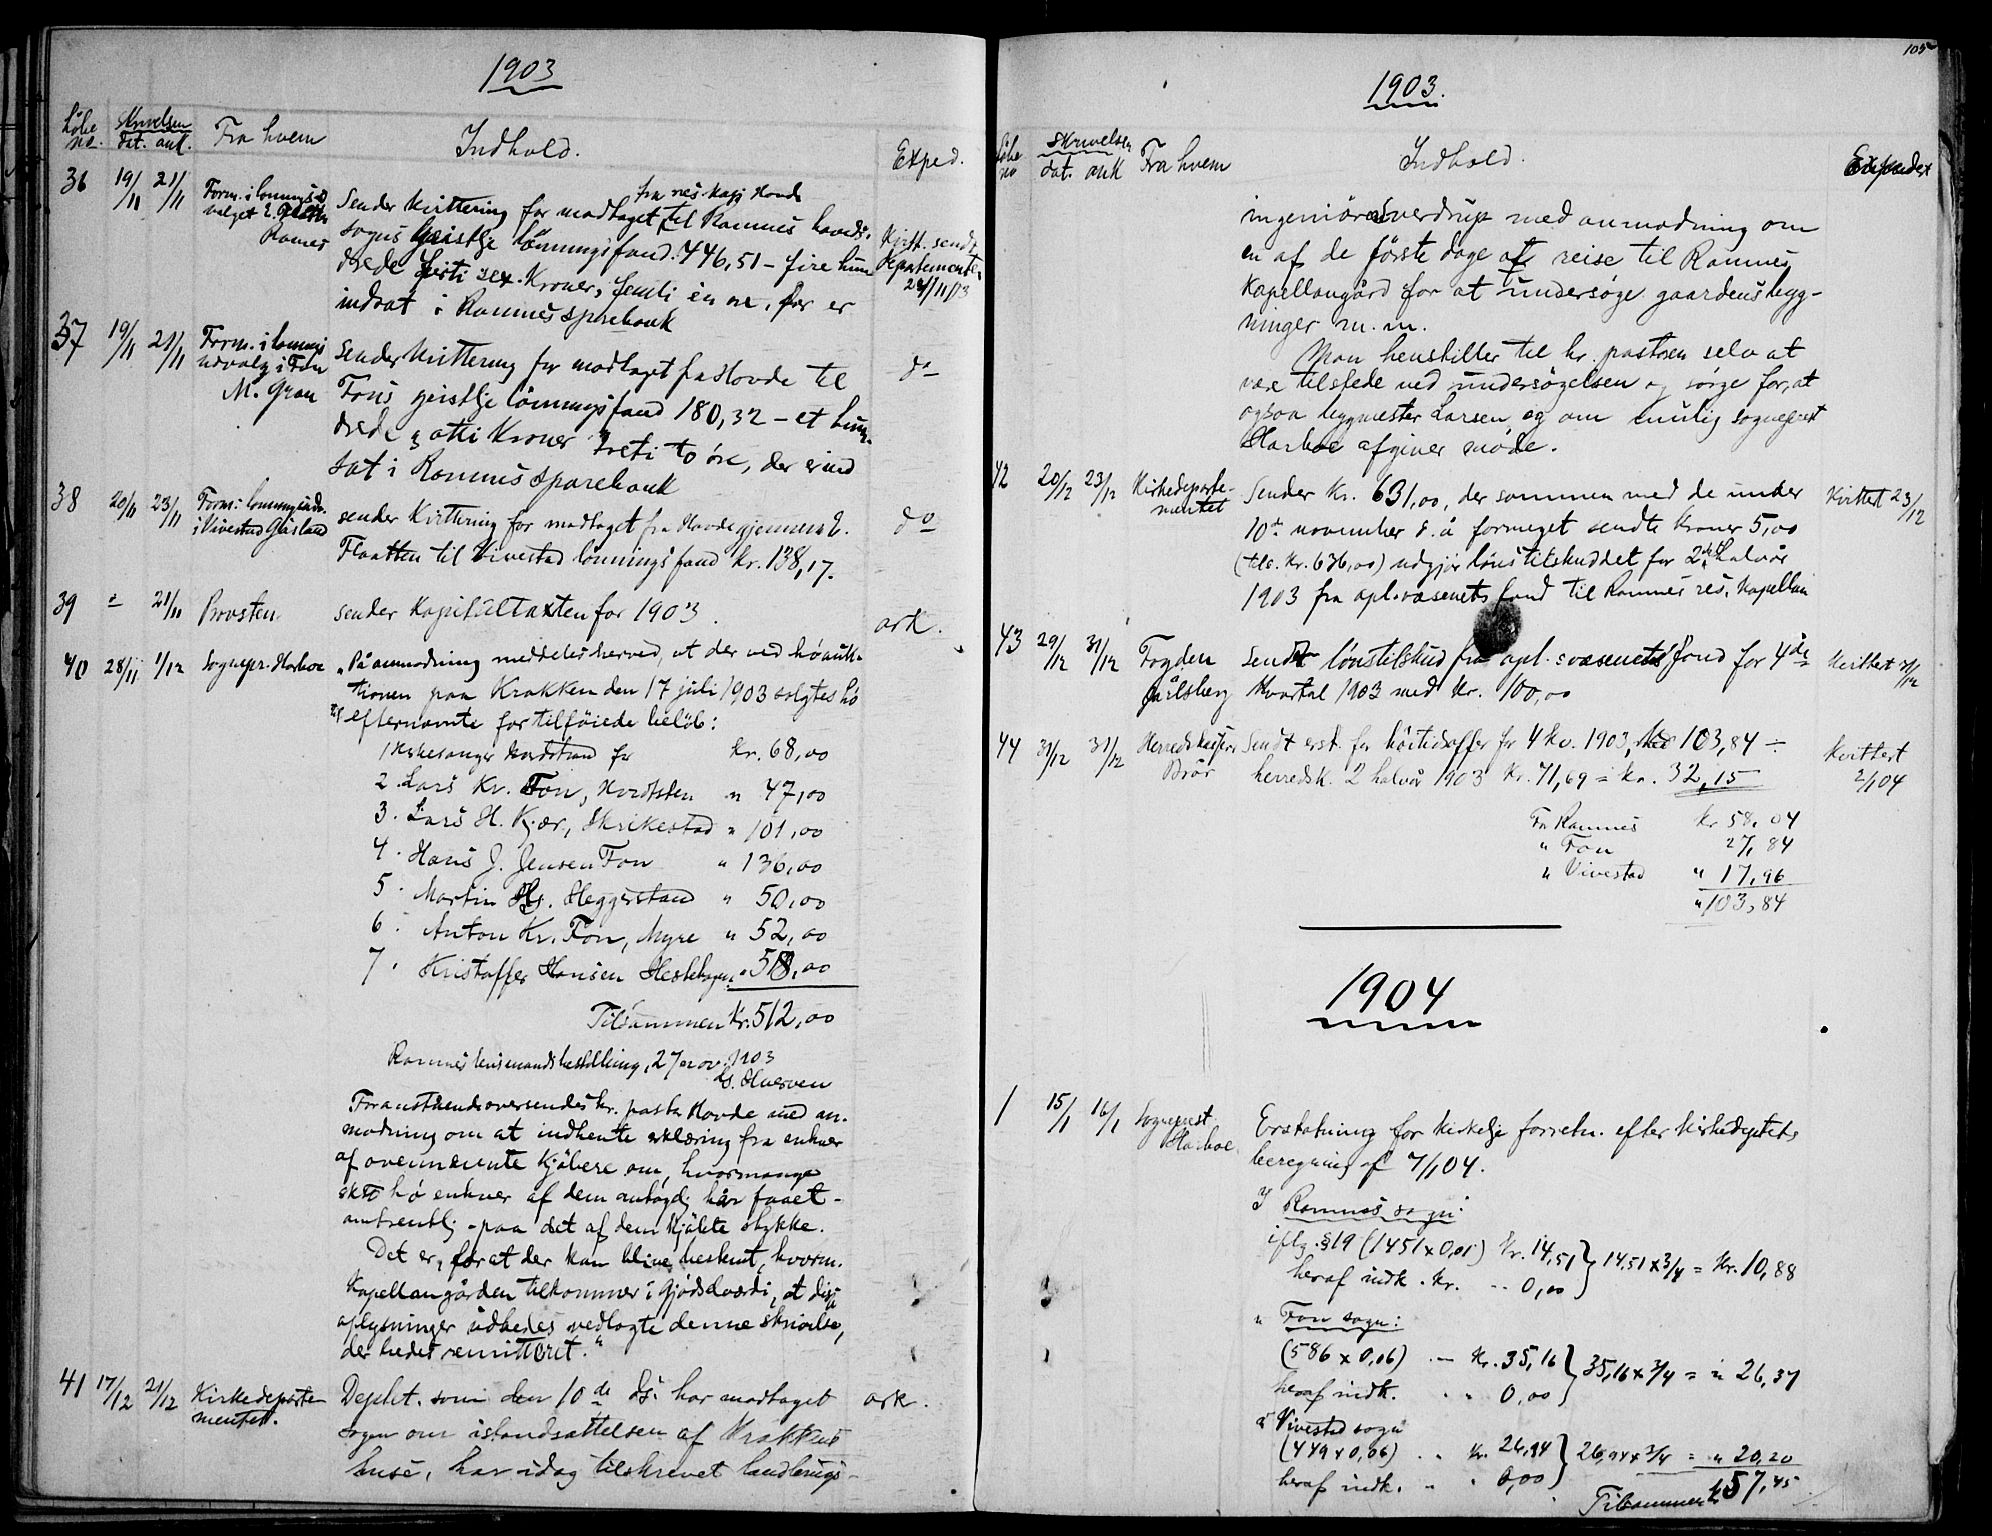 1903
Löbe no. Skrivelsen dat. ank. Fra hvem Indhold. Exped.
36 19/11 21/11 Form. i lönnings-
valget E.
Ramnes
fra res. kap. Hovde
Sender kvittering for modtaget til Ramnes hoved-
sogns geistlje lönningsfond 446,51 – fire hun
drede firti sex Kroner, femti en øre, der er
indsat i Ramnes sparebank
Kvitt. sendt
departementet
24/11/03
37 19/11 21/11 Form. i lönnings
udvalg i Fon
M. Gran
Sender kvittering for modtaget fra Hovde til
Fons geistlje lönningsfond 180,32 – et hun-
drede otti Kroner treti to öre, der er ind
sat i Ramnes sparebank
do
38 20/11 23/11 Form. i lönningsudv.
i Vivestad
sender Kvittering for modtaget fra Hovde gjennem E.
Flaatten til Vivestad lönningsfond kr. 138,17.
do
39 21/11 Provsten sender Kapitaltaxten for 1903. ark.
40 28/11 1/12 Sognepr. Harboe „På anmodning meddeles herved, at der ved höauk-
tionen paa Krakken den 17 juli 1903 solgtes hö
til efternævnte for tilföiede belöb:
1 Kirkesanger Nordstrand for kr. 68,00
2. Lars Kr. Fon, Nordsten " 47,00
3. Lars H. Kjær, Skrikestad " 101,00
4. Hans J. Jensen Fon " 136,00
5. Martin Hs. Heggerstad " 50,00
6. Anton Kr. Fon, Myre " 52,00
7. Kristoffer Hansen Hestehagen " 58,00
Tilsammen Kr. 512,00
Ramnes lensmandsbestilling, 27 nov. 1903
Foranstående oversendes hr. pastor Hovde med an-
modning om at indhente erklæring fra enhver
af ovennævnte kjöbere om, hvormange
hö enhver af dem antagelig har faaet –
omtrentlig – paa det af dem kjöbte stykke.
Det er, for at der kan blive beskrevet, hvorm.
kapellangården tilkommer i gjödselværdi, at disse
oplysninger udbedes vedlagte denne skrivelse,
der bedes remitteret."
41 17/12 21/12 Kirkedeparte-
mentet.
Depht. som den 10de ds. har modtaget
sagen om istandsættelsen af Krakkens
huse, har idag tilskrevet landbrugs-
ark.
105
1903.
Löbe no Skrivelsen dat. ank Fra hvem Indhold.
ingeniör Sverdrup med anmodning om
en af de förste dage at reise til Ramnes
kapellangård for at undersøge gaardens byg-
ninger m.m.
Man henstiller til hr. pastoren selv at
være tilstede ved undersøgelsen og sørge for, at
ogsaa bygmester Larsen og om mulig sogneprest
Harboe afgiver møde.
42 20/12 23/12 Kirkedeparte-
mentet
Sender Kr. 631,00, der sammen med de under
10de november d. å. formeget sendte Kroner 5,00
(tils. Kr. 636,00) udgjör lönstilskuddet for 2det halvår
1903 fra opl.væsenets fond til Ramnes res. Kapellan
Kvittert 23/12
43 29/12 31/12 Fogden
Jarlsberg
Sendt lönstilskud fra opl.svæsenets fond for 4de
Kvartal 1903 med Kr. 100,00
44 31/12 31/12 Herredskasserer
Bror
Sendt erst. for höitidsoffer for 4 kv. 1903, 103,84 ÷
herredsk. 2 halvår 1903 Kr. 71,69 = kr. 32,15
Kvittert
2/1 04
Fra Ramnes kr 58,04
" Fon 27,84
" Vivestad " 17,96
" 103,84
1904
1 15/1 16/1 Sogneprest
Harboe
Erstatning for kirkelje forretn. efter kirkedeptets
beregning af 7/1 04.
I Ramnes sogn:
iflg. §19 (1451 x 0,01) Kr. 14,51 } 14,51 x 3/4 = Kr. 10,88
heraf indk. Kr. 0,00
" Fon sogn:
(586 x 0,06) – Kr. 35,16 } 35,16 x 3/4 = " 26,37
heraf indk. " 0,00
" Vivestad sogn
(449 x 0,06) Kr. 26,94 } 26,94 x 3/4 = " 20,20
heraf indk. " 0,00
Tilsammen 57,45